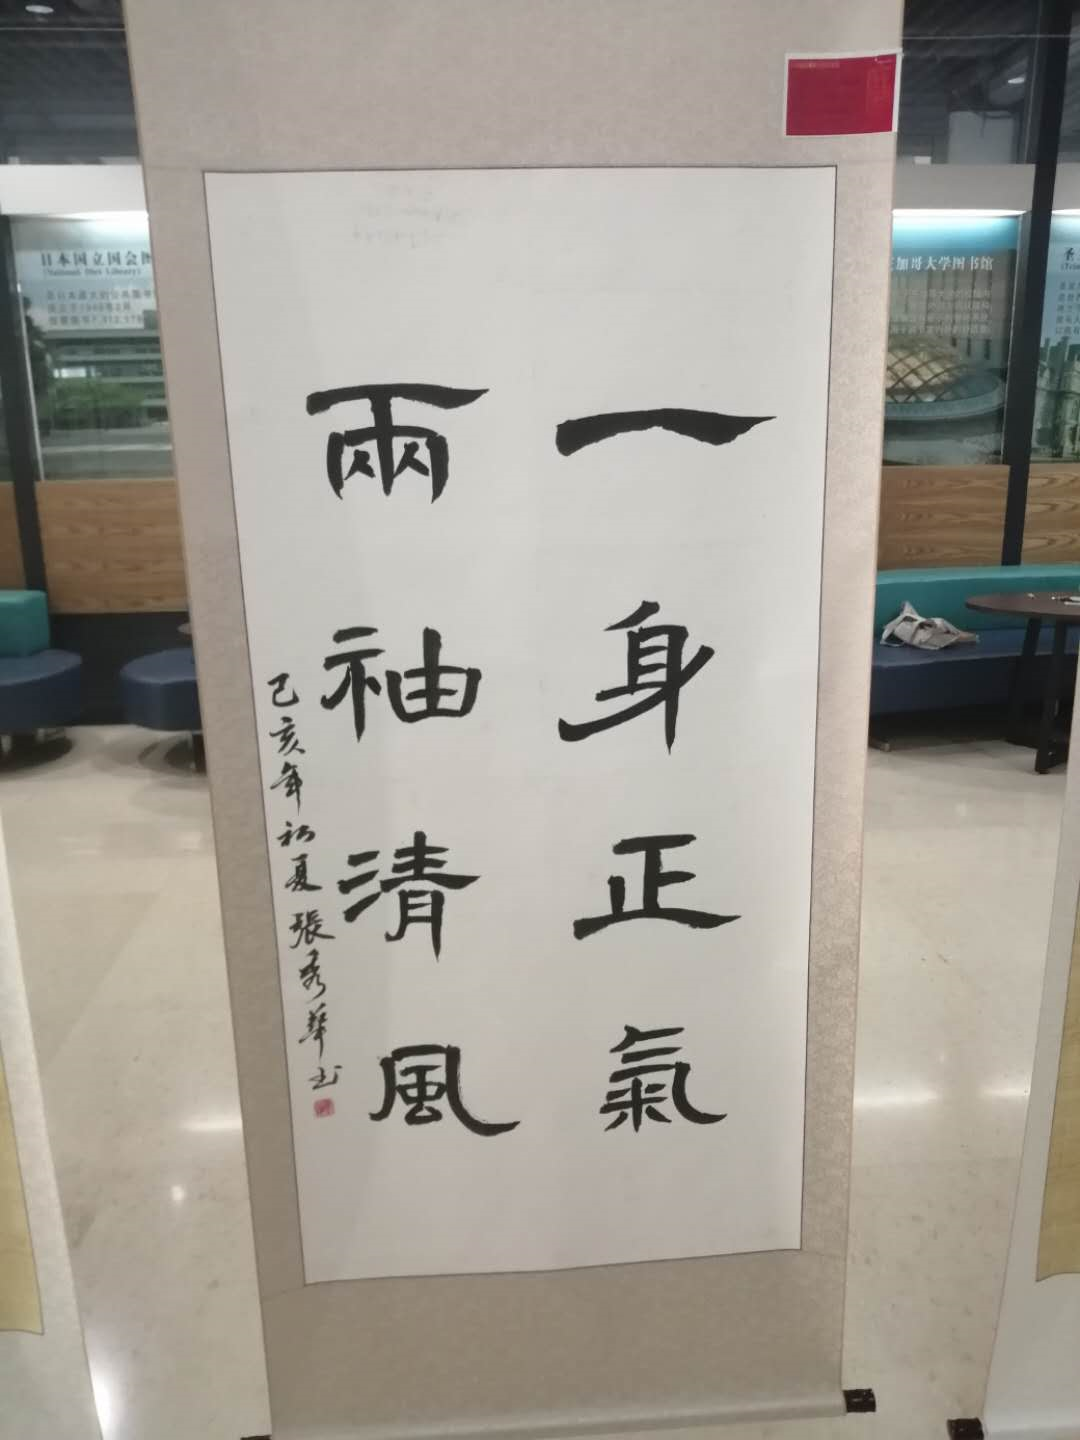 一身正氣
兩袖清風
己亥年初夏張秀華书
日本国立国会图
(National Diet Library)
加哥大学图书馆